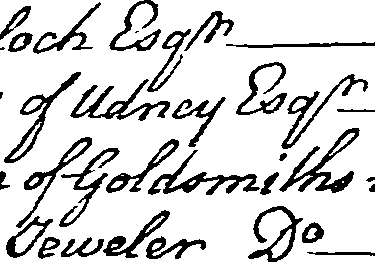 loch Esqr
of Udney Esqr
of Goldsmiths
Jeweler Do